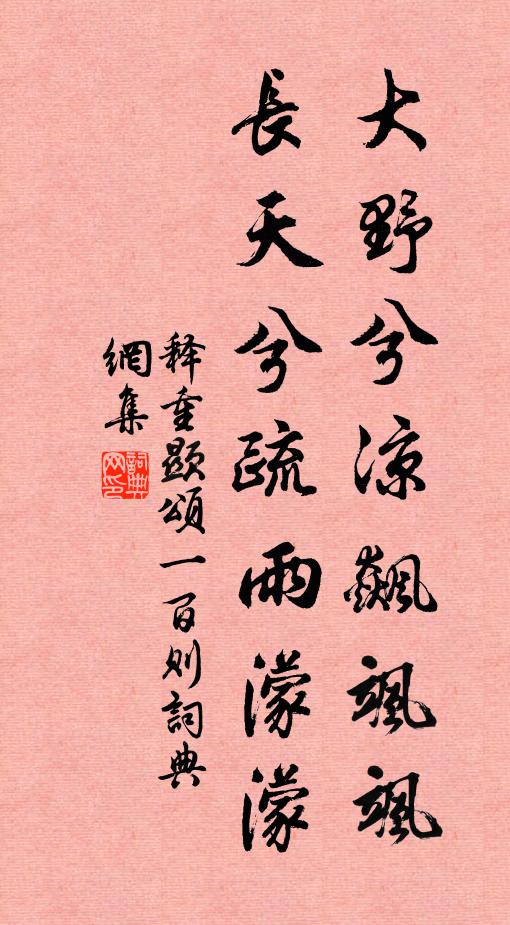 大野兮凉飆颯颯
長天兮疏雨濛濛
释重顯頌一百则詞典
網集
詞典網印